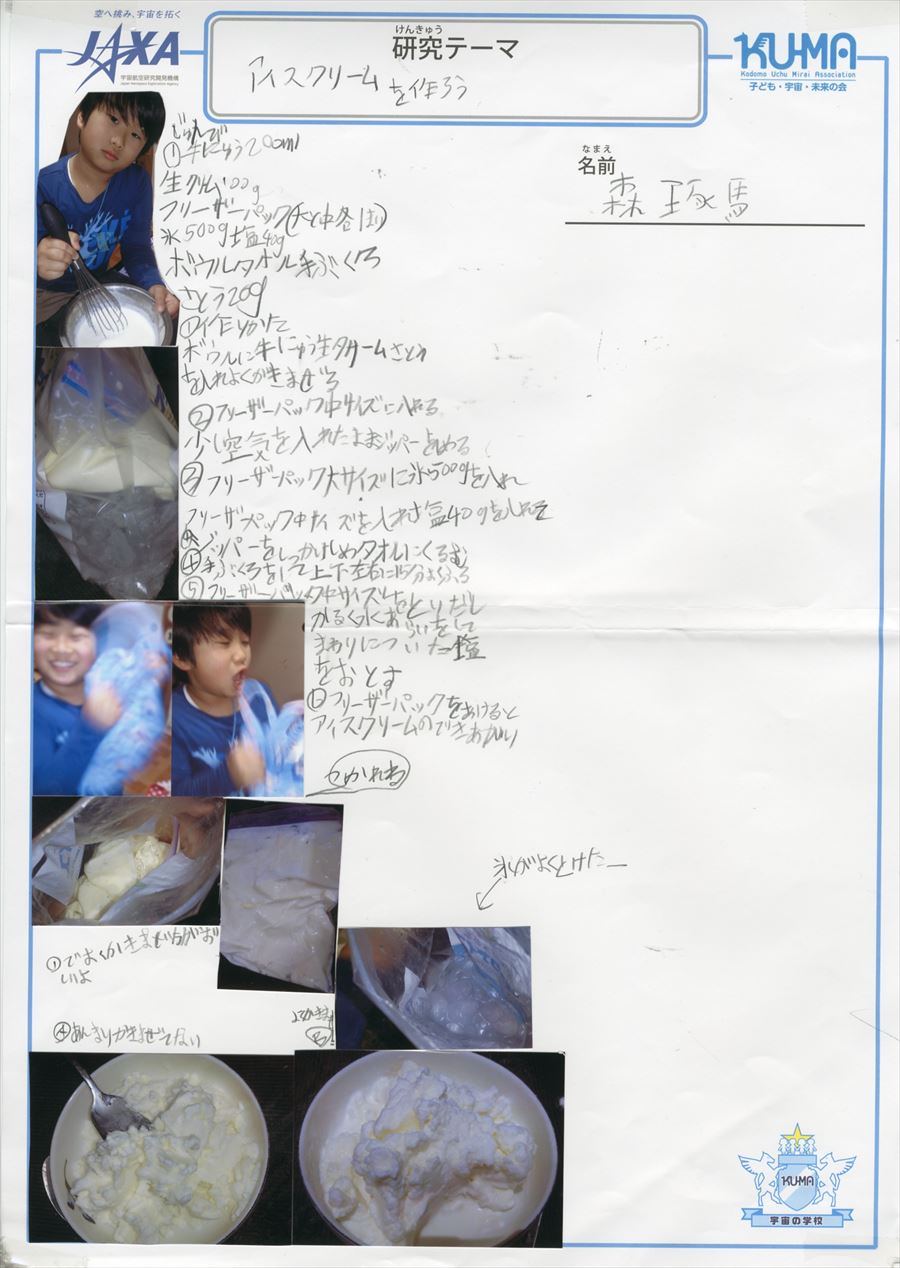 空へ挑み、宇宙を拓く
JAXA
宇宙航空研究開発機構
Japan Aerospace Exploration Agency
けんきゅう
研究テーマ
アイスクリームを作ろう
KU-MA
Kodomo Uchu Mirai Association
子ども・宇宙・未来の会
なまえ
名前
森 琢馬
じゅんび
①牛にゅう200ml
生クリム100g
フリーザーパック(大と中各1まい)
氷500g塩40g
ボウルタオル手ぶくろ
さとう20g
①作りかた
ボウルに牛にゅう生クリームさとう
を入れよくかきまぜる
②フリーザーパック中サイズに入れる
少し空気を入れたままジッパーをしめる
③フリーザーパック大サイズに氷500gを入れ
フリーザーパック中サイズを入れ塩40gを入れる
④ジッパーをしっかりしめタオルにくるむ
手ぶくろをして上下左右に15分よくふる
⑤フリーザーパック中サイズをとりだし
かるく水あらいをして
まわりについた塩
をおとす
⑥フリーザーパックをあけると
アイスクリームのできあがり
つかれる
氷がよくとけたー
①でよくかきまぜた方がお
いしいよ
④あんまりかきまぜてない
KU-MA
宇宙の学校